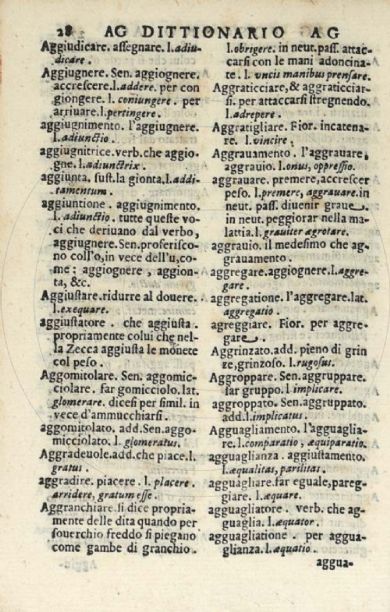 28 AG DITTIONARIO AG
Aggiudicare. assegnare. l. adiu-
dicare.
Aggiugnere. Sen. aggiognere.
accrescere. l. addere. per con
giongere. l. coniungere. per
arriuare. l. pertingere.
aggiugnimento. l'aggiugnere.
l. adiunctio.
aggiugnitrice. verb. che aggio-
gne. l. adiunctrix.
aggiunta, sust. la gionta. l. addi-
tamentum.
aggiuntione. aggiugnimento.
l. adiunctio. tutte queste vo-
ci che deriuano dal verbo,
aggiugnere. Sen. proferisco-
no coll'o, in vece dell'u, co-
me; aggiognere, aggion-
ta, &c.
Aggiustare. ridurre al douere.
l. exequare.
aggiustatore. che aggiusta.
propriamente colui che nel-
la Zecca aggiusta le monete
col peso.
Aggomitolare. Sen. aggomic-
ciolare. far gomicciolo. lat.
glomerare. dicesi per simil. in
vece d'ammucchiarsi.
aggomitolato. add. Sen. aggo-
micciolato. l. glomeratus.
Aggradeuole. add. che piace. l.
gratus.
aggradire. piacere. l. placere.
arridere, gratum esse.
Aggranchiare. si dice propria-
mente delle dita quando per
souerchio freddo si piegano
come gambe di granchio.
l. obrigere. in neut. pass. attac-
carsi con le mani adoncina-
te. l. vncis manibus prensare.
Aggraticciare, & aggraticciar-
si. per attaccarsi stregnendo.
l. adrepere.
Aggratigliare. Fior. incatena-
re. l. vincire.
Aggrauamento. l'aggrauare,
aggrauio. l. onus, oppressio.
aggrauare. premere, accrescer
peso. l. premere, aggrauare. in
neut. pass. diuenir graue.
in neut. peggiorar nella ma-
lattia. l. grauiter agrotare.
aggrauio. il medesimo che ag-
grauamento.
aggregare. aggiognere. l. aggre-
gare.
aggregatione. l'aggregare. lat.
aggregatio.
agreggiare. Fior. per aggre-
gare.
Aggrinzato. add. pieno di grin
ze, grinzoso. l. rugosus.
Aggroppare. Sen. aggruppare.
far gruppo. l. implicare.
aggroppato. Sen. aggruppato.
add. l. implicatus.
Agguagliamento. l'agguaglia-
re. l. comparatio, æquiparatio.
agguaglianza. aggiustamento.
l. æqualitas, parilitas.
agguagliare. far eguale, pareg-
giare. l. æquare.
agguagliatore. verb. che ag-
guaglia. l. æquator.
agguagliatione. per aggua-
glianza. l. æquatio.
aggua-